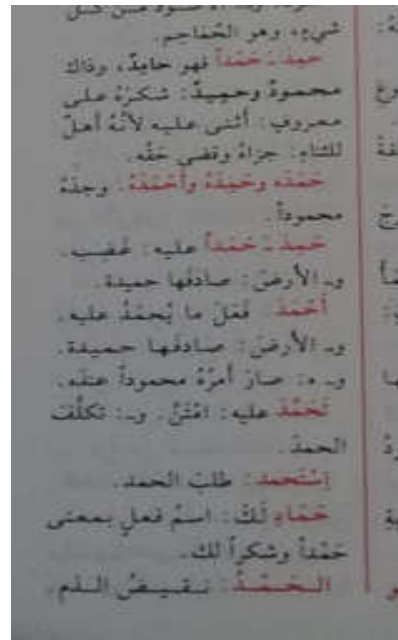 شيء، وهو الحَمَاحم.
حَمِدَ ـَ حَمْداً فهو حامِدٌ، وذاك
محمودٌ وحميدٌ: شكرَهُ على
معروفٍ: أثنى عليه لأنّهُ أهلٌ
للثناءِ: جزاهُ وقضى حقَّه.
حَمَدَه وحَمِدَهُ وأَحْمَدَهُ: وجدَهُ
محموداً.
حَمِدَ ـَ حَمَداً عليه: غَضِب.
و ـ الأرضَ: صادفَها حميدة.
أَحْمَدَ: فَعَلَ ما يُحمَدُ عليه.
و ـ الأرضَ: صادفَها حميدة.
و ـ ه: صارَ أمرُهُ محموداً عنده.
تَحَمَّدَ عليه: امْتَنَّ. و ـ: تكلَّفَ
الحمدَ.
إسْتَحمد: طلبَ الحمد.
حَمَادِ لَكَ: اسمُ فعلٍ بمعنى
حَمْداً وشكراً لك.
الـحَـمْـدُ: نـقـيـضُ الـذم.